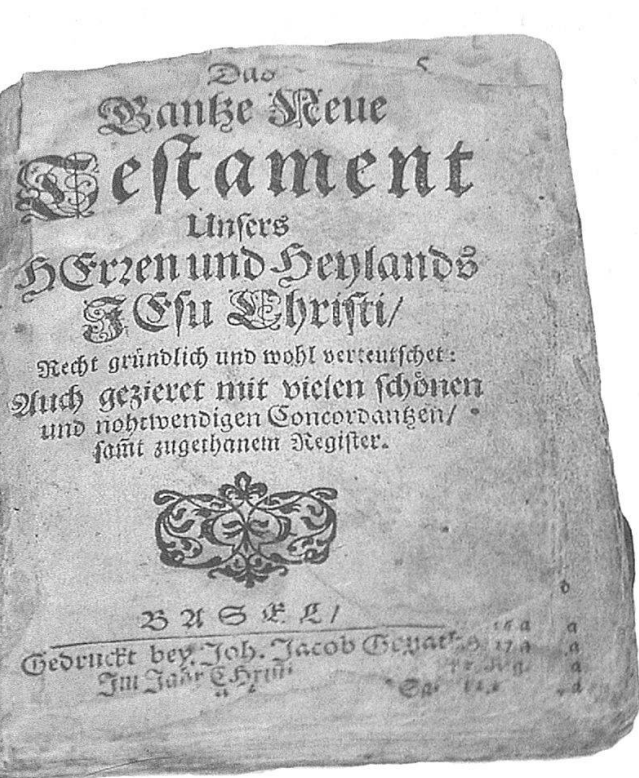 Das
Gantze Neue
Testament
Unsers
HErren und Heylands
JEsu Christi/
Recht gründlich und wohl verteutschet:
Auch gezieret mit vielen schönen
und nohtwendigen Concordantzen/
sam̃t zugethanem Register.
BASEL/
Gedruckt bey Joh. Jacob
Im Jahr Christi